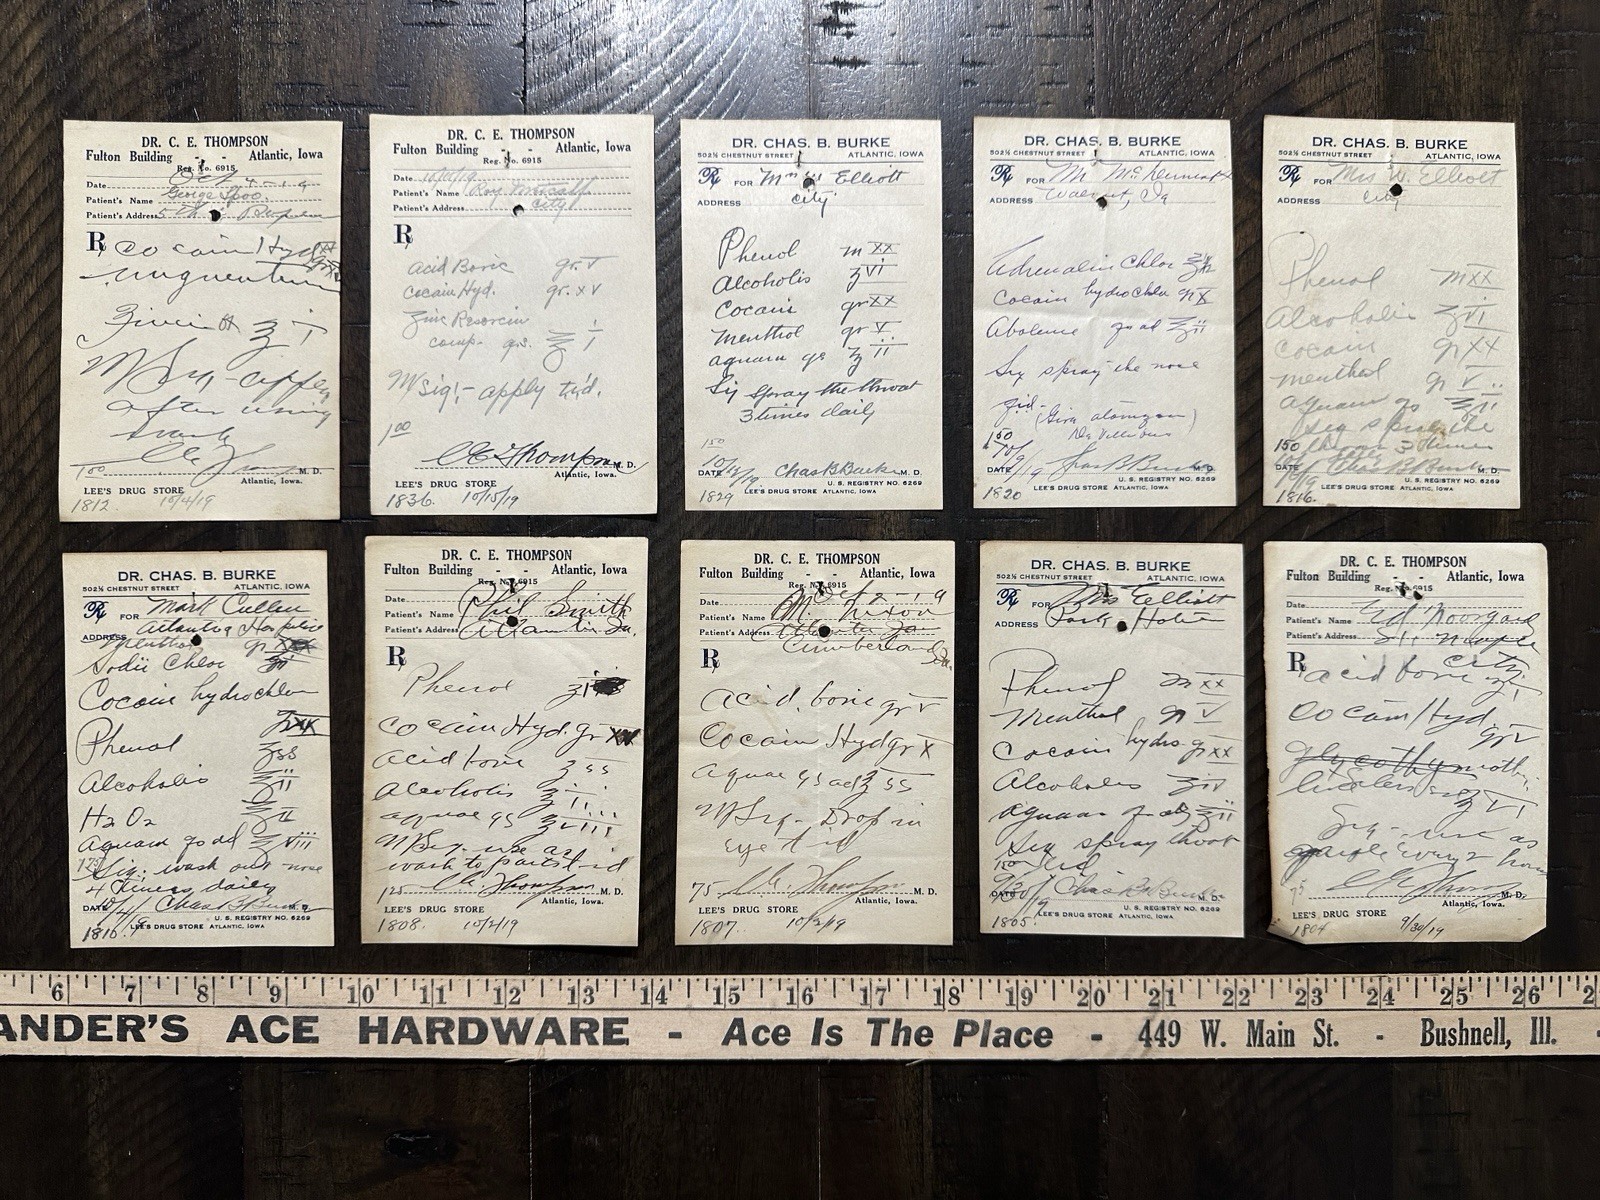 DR. C. E. THOMPSON
Fulton Building - - Atlantic, Iowa
Reg. No. 6915
Date Oct 4 - 19
Patient's Name George
Patient's Address 5th
R Cocain Hyd
unguentum
ʒ i
M Sig - apply
after using
1.00 M. D.
Atlantic, Iowa.
LEE'S DRUG STORE
1812. 10/4/19
DR. C. E. THOMPSON
Fulton Building - - Atlantic, Iowa
Reg. No. 6915
Date 10/15/19
Patient's Name Roy Metcalf
Patient's Address City
R
Acid Boric gr. v
Cocain Hyd. gr. xv
Zinc Resorcin
comp. qs. ℥ i
M Sig:- apply t.i.d.
1.00
CE Thompson M. D.
Atlantic, Iowa.
LEE'S DRUG STORE
1836. 10/15/19
DR. CHAS. B. BURKE
502½ CHESTNUT STREET ATLANTIC, IOWA
Rx FOR Mrs W Elliott
ADDRESS city
Phenol m xx
Alcoholis ʒ vi
Cocain gr xx
Menthol gr v
aquam qs ℥ ii
Sig spray the throat
3 times daily
150
DATE 10/13/19. Chas B Burke M. D.
U. S. REGISTRY NO. 6269
1829 LEE'S DRUG STORE ATLANTIC, IOWA
DR. CHAS. B. BURKE
502½ CHESTNUT STREET ATLANTIC, IOWA
Rx FOR Mr
ADDRESS Walnut, Ia
Adrenalin Chlor
Cocain hydrochlor gr x
Abolene q s ad ℥ ii
Sig spray the nose
(Give atomizer)
De Vilbiss
150
DATE 10/9/19 Chas B Burke M. D.
U. S. REGISTRY NO. 6269
1820 LEE'S DRUG STORE ATLANTIC, IOWA
DR. CHAS. B. BURKE
502½ CHESTNUT STREET ATLANTIC, IOWA
Rx FOR Mrs W. Elliott
ADDRESS city
Phenol m xx
Alcoholis ʒ vi
Cocain gr xx
menthol gr v
aquam qs ℥ ii
Sig spray the
throat 3 times
150 daily
DATE Chas B Burke M. D.
U. S. REGISTRY NO. 6269
LEE'S DRUG STORE ATLANTIC, IOWA
1816.
DR. CHAS. B. BURKE
502½ CHESTNUT STREET ATLANTIC, IOWA
Rx FOR Mark Cullen
ADDRESS Atlantic Hospital
Menthol gr
Sodii Chlor
Cocain hydrochlor
gr xx
Phenol ʒ ss
Alcoholis ℥ ii
H2O2 ℥ ii
Aquam q s ad ℥ viii
175 Sig: wash out nose
4 times daily
DATE 10/4/19 Chas B Burke M. D.
U. S. REGISTRY NO. 6269
1810. LEE'S DRUG STORE ATLANTIC, IOWA
DR. C. E. THOMPSON
Fulton Building - - Atlantic, Iowa
Reg. No. 6915
Date
Patient's Name Phil Smith
Patient's Address Atlantic Ia.
R
Phenol
Cocain Hyd. gr
Acid boric ʒ ss
Alcoholis ℥ ii
aquae qs ℥ viii
M Sig. use as
wash to parts t-i-d
125 CE Thompson M. D.
Atlantic, Iowa.
LEE'S DRUG STORE
1808. 10/2/19
DR. C. E. THOMPSON
Fulton Building - - Atlantic, Iowa
Reg. No. 6915
Date Oct 2 - 19
Patient's Name M. Nixon
Patient's Address Atlantic Ia
Cumberland Ia.
R
Acid. boric gr v
Cocain Hyd gr x
Aquae qs ad ℥ ss
M Sig - Drop in
eye t i d
75 CE Thompson M. D.
Atlantic, Iowa.
LEE'S DRUG STORE
1807. 10/2/19
DR. CHAS. B. BURKE
502½ CHESTNUT STREET ATLANTIC, IOWA
Rx FOR Mrs Elliott
ADDRESS Park Hotel
Phenol m xx
Menthol gr v
Cocain hydro gr xx
Alcoholis ʒ iv
Aquam q s ad ℥ ii
Sig spray throat
150 tid
DATE 9/30/19 Chas B Burke M. D.
U. S. REGISTRY NO. 6269
LEE'S DRUG STORE ATLANTIC, IOWA
1805.
DR. C. E. THOMPSON
Fulton Building - - Atlantic, Iowa
Reg. No. 6915
Date
Patient's Name Ed Noorgard
Patient's Address
City
R Acid boric ʒ i
Cocain Hyd
gr v
Glycothymoline
Sig - use as
gargle every 2 hours
75 CE Thompson M. D.
Atlantic, Iowa.
LEE'S DRUG STORE
1804 9/30/19
6 7 8 9 10 11 12 13 14 15 16 17 18 19 20 21 22 23 24 25 26 2
ANDER'S ACE HARDWARE - Ace Is The Place - 449 W. Main St. - Bushnell, Ill. -